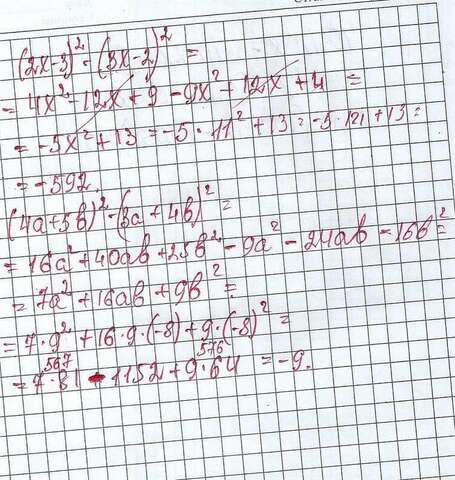 (2x-3)² - (3x-2)² =
= 4x² - 12x + 9 - 9x² + 12x + 4 =
= -5x² + 13 = -5 · 11² + 13 = -5 · 121 + 13 =
= -592.
(4a+5b)² - (3a+4b)² =
= 16a² + 40ab + 25b² - 9a² - 24ab - 16b² =
= 7a² + 16ab + 9b² =
= 7 · 9² + 16 · 9 · (-8) + 9 · (-8)² =
567 576
= 7 · 81 - 1152 + 9 · 64 = -9.